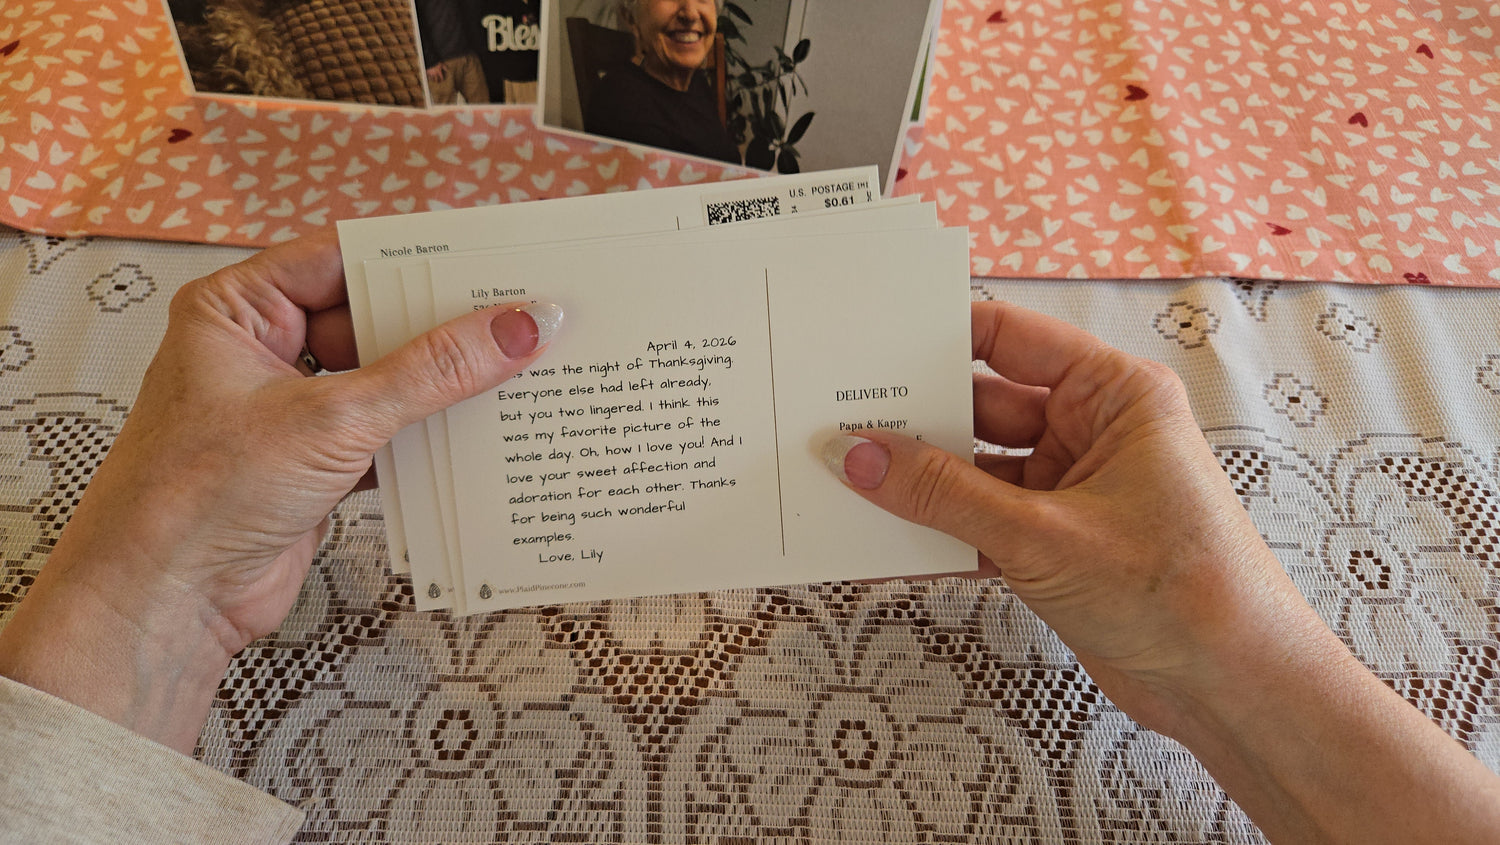 Bles
U.S. POSTAGE
$0.61
Nicole Barton
Lily Barton
April 4, 2026
was the night of Thanksgiving.
Everyone else had left already,
but you two lingered. I think this
was my favorite picture of the
whole day. Oh, how I love you! And I
love your sweet affection and
adoration for each other. Thanks
for being such wonderful
examples.
Love, Lily
DELIVER TO
Papa & Kappy
www.PlaidPinecone.com